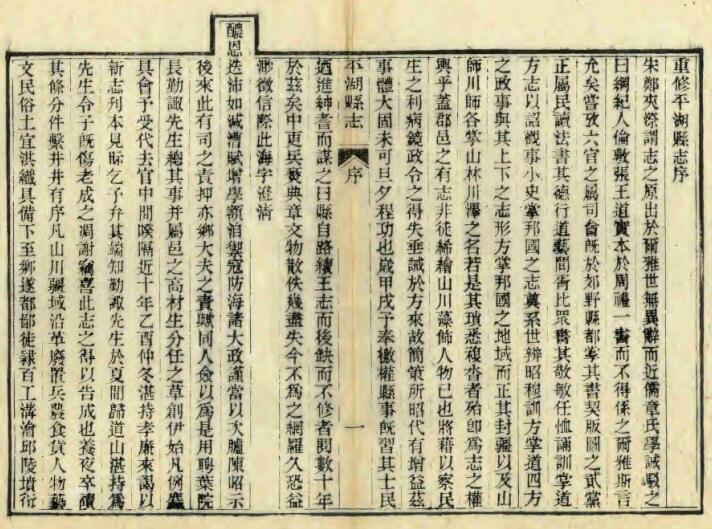 重修平湖縣志序
朱鄭夾漈謂志之原出於爾雅世無異辭而近儒章氏學誠駁之
曰綱紀人倫敦張王道實本於周禮一書而不得係之爾雅斯言
允矣嘗攷六官之屬司會旣於郊野縣都掌其書契版圖之貳黨
正屬民讀法書其德行道藝閭胥比眾書其敬敏任恤誦訓掌道
方志以詔觀事小史掌邦國之志奠系世辨昭程訓方掌道四方
之政事與其上下之志形方掌邦國之地域而正其封疆以及山
師川師各掌山林川澤之名若是其瑣悉複沓者殆卽爲志之權
輿乎蓋郡邑之有志非徒絺繪山川藻飾人物已也將藉以察民
生之利病鏡政令之得失垂誡於方來故簡策所昭代有增益茲
事體大固未可旦夕程功也歲甲戌予奉檄權縣事旣習其士民
平湖縣志 序 一
迺進紳耆而謀之曰縣自路續王志而後缺而不修者閱數十年
於茲矣中更兵燹典章文物散佚幾盡失今不爲之網羅久恐益
渺徵信際此海宇澄淸
醲恩
迭沛如減漕賦增學額洎禦寇防海諸大政謹當以次臚陳昭示
後來此有司之責抑亦鄉大夫之責歟同人僉以爲是用聘葉院
長勤諏先生總其事并屬邑之高材生分任之草創伊始凡例麤
具會予受代去官中間暌隔近十年乙酉仲冬湛持孝廉來謁以
新志列本見眎乞予弁其端知勤諏先生於夏間歸道山湛持爲
先生令子旣傷老成之凋謝竊喜此志之得以告成也養夜卒讀
其條分件繫井井有序凡山川疆域沿革廢置兵農食貨人物藝
文民俗土宜洪纖具備下至鄉遂都鄙徒隸百工溝澮邱陵墳衍